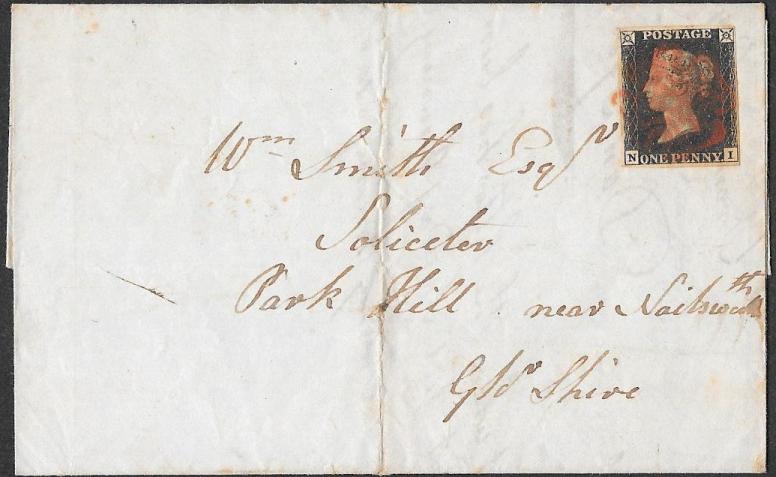 POSTAGE
N ONE PENNY I
Wm Smith Esqr
Soliceter
Park Hill near Nailsworth
Glor Shire